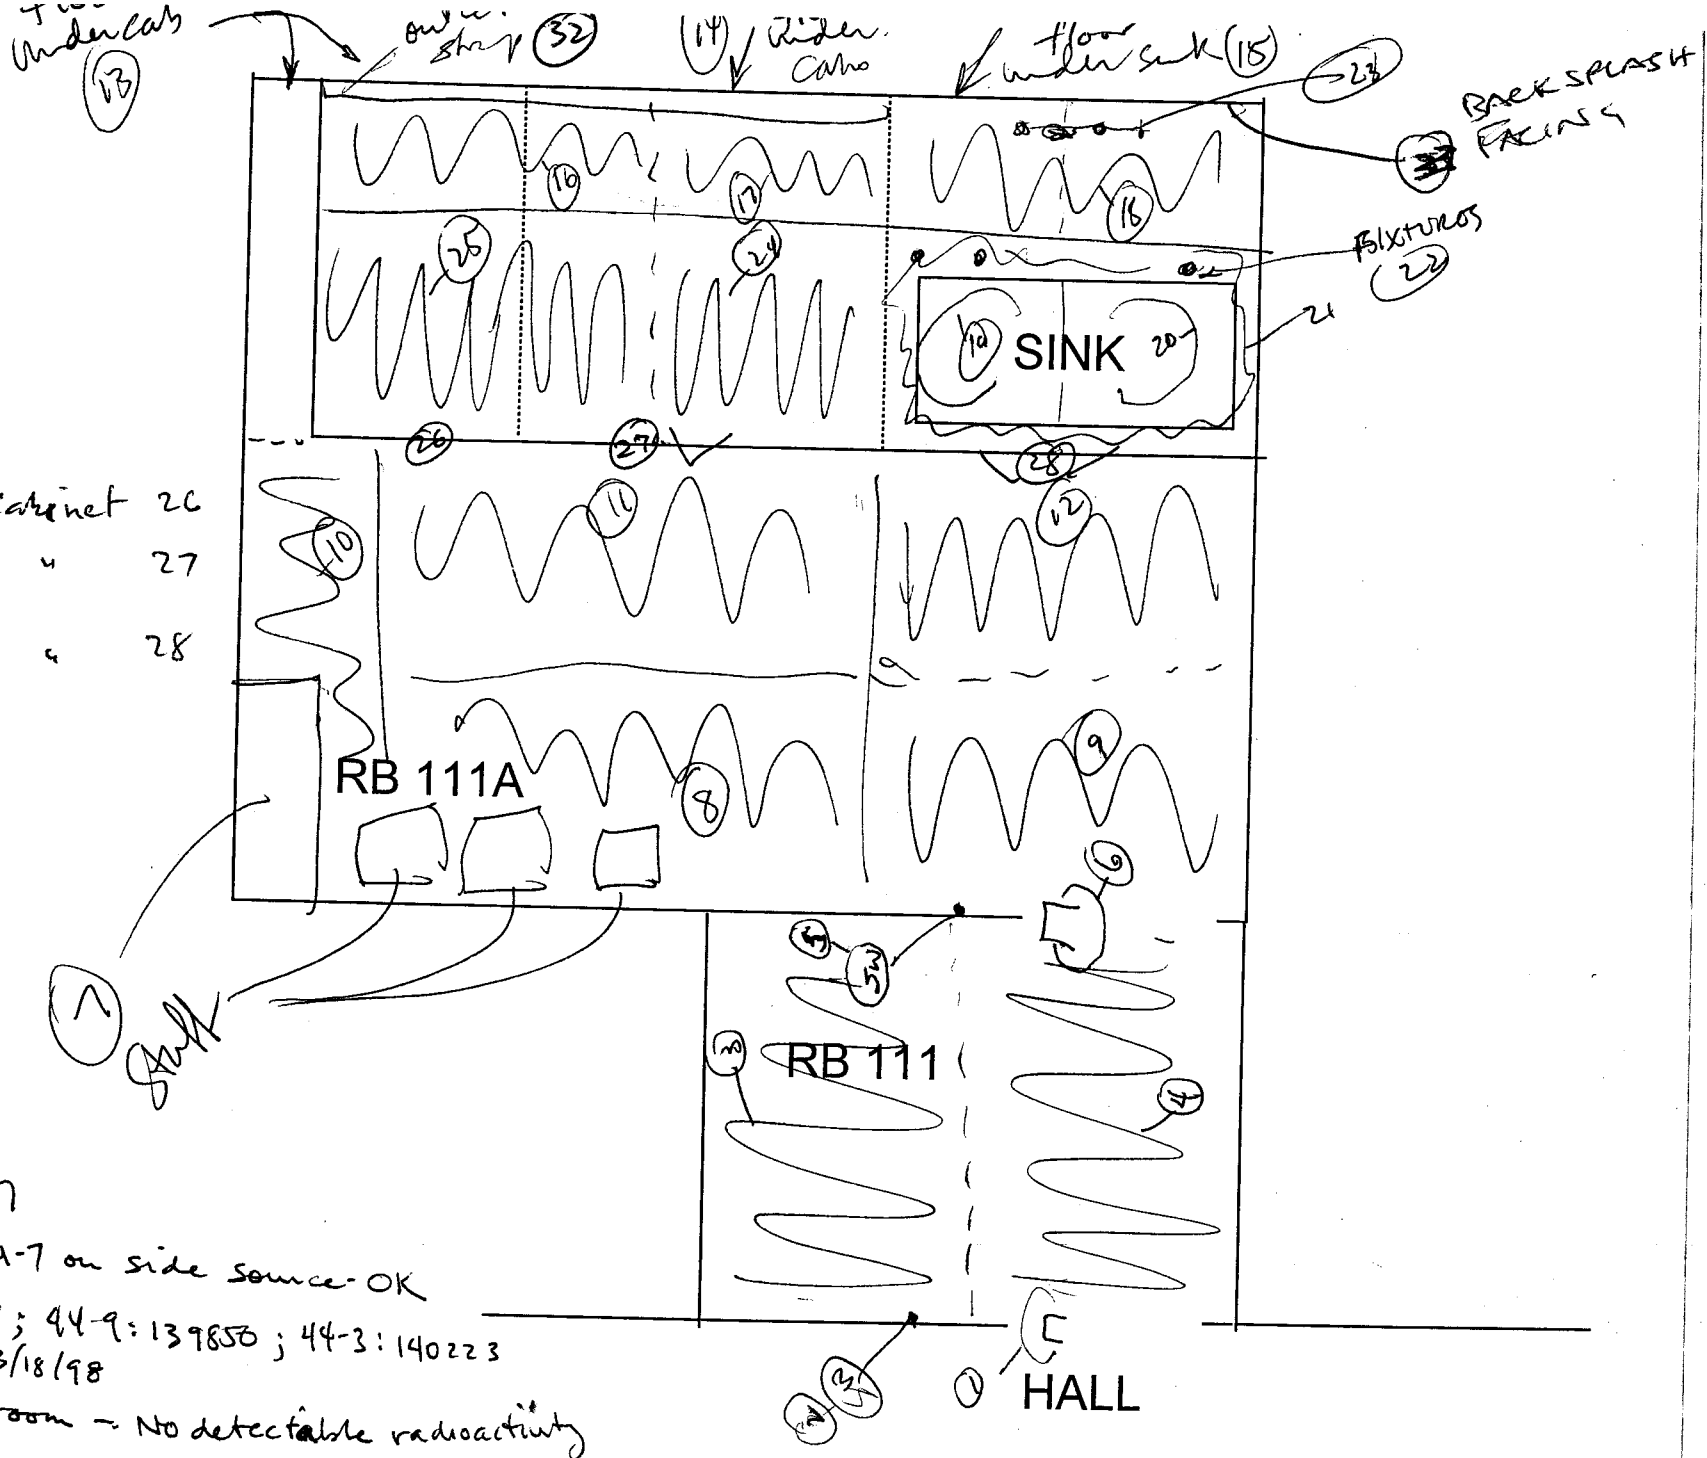 outlet
strip 32
14 Under
Cabs
floor
under sink 15
Undercab
13
23
BACKSPLASH
FACING
16
17
18
25
24
FIXTURES
22
21
19
SINK
20
26
27
28
Cabinet 26
" 27
" 28
10
11
12
9
RB 111A
8
9
6
7
Stuff
5W
RB 111
4
A-7 on side source-OK
; 44-9: 139850 ; 44-3: 140223
3/18/98
room - No detectable radioactivity
3
1
HALL